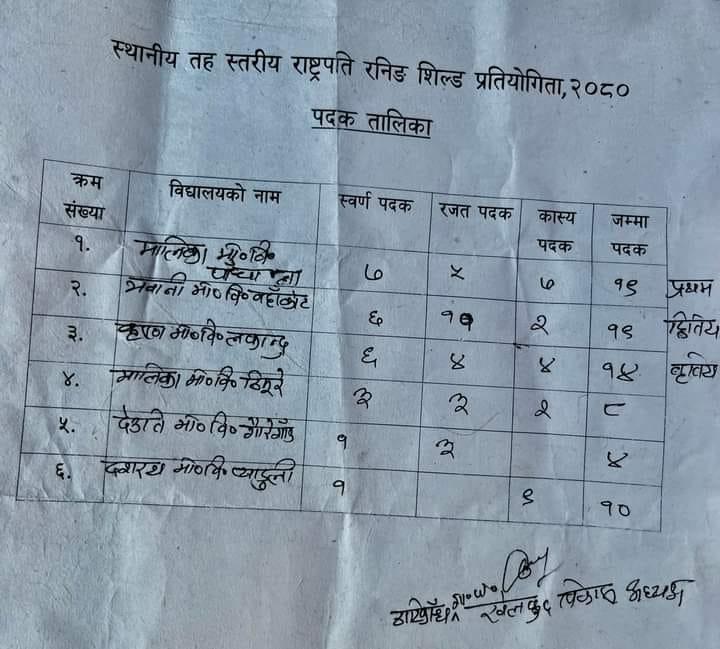 स्थानीय तह स्तरीय राष्ट्रपति रनिङ शिल्ड प्रतियोगिता,२०८०
पदक तालिका
क्रम संख्या विद्यालयको नाम स्वर्ण पदक रजत पदक कास्य पदक जम्मा पदक
१. मालिका मा०वि० ७ ५ ७ १९ प्रथम
२. भवानी मा०वि० ६ ११ २ १९ द्वितिय
३. कृष्ण मा०वि० लकान्द्र ६ ४ ४ १४ तृतिय
४. मालिका मा०वि० ३ ३ २ ८
५. मा०वि० १ ३ ४
६. दशरथ मा०वि० १ ९ १०
खेलकुद विकास अध्यक्ष